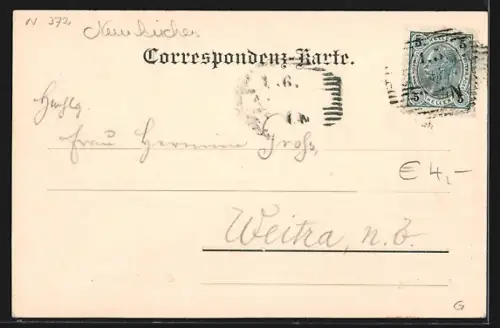 N 372
Neunkirchen
Correspondenz-Karte.
5 HELLER 5
1.6.
Frau Hermine Groß,
€ 4,-
Weitra, n.Ö.
G